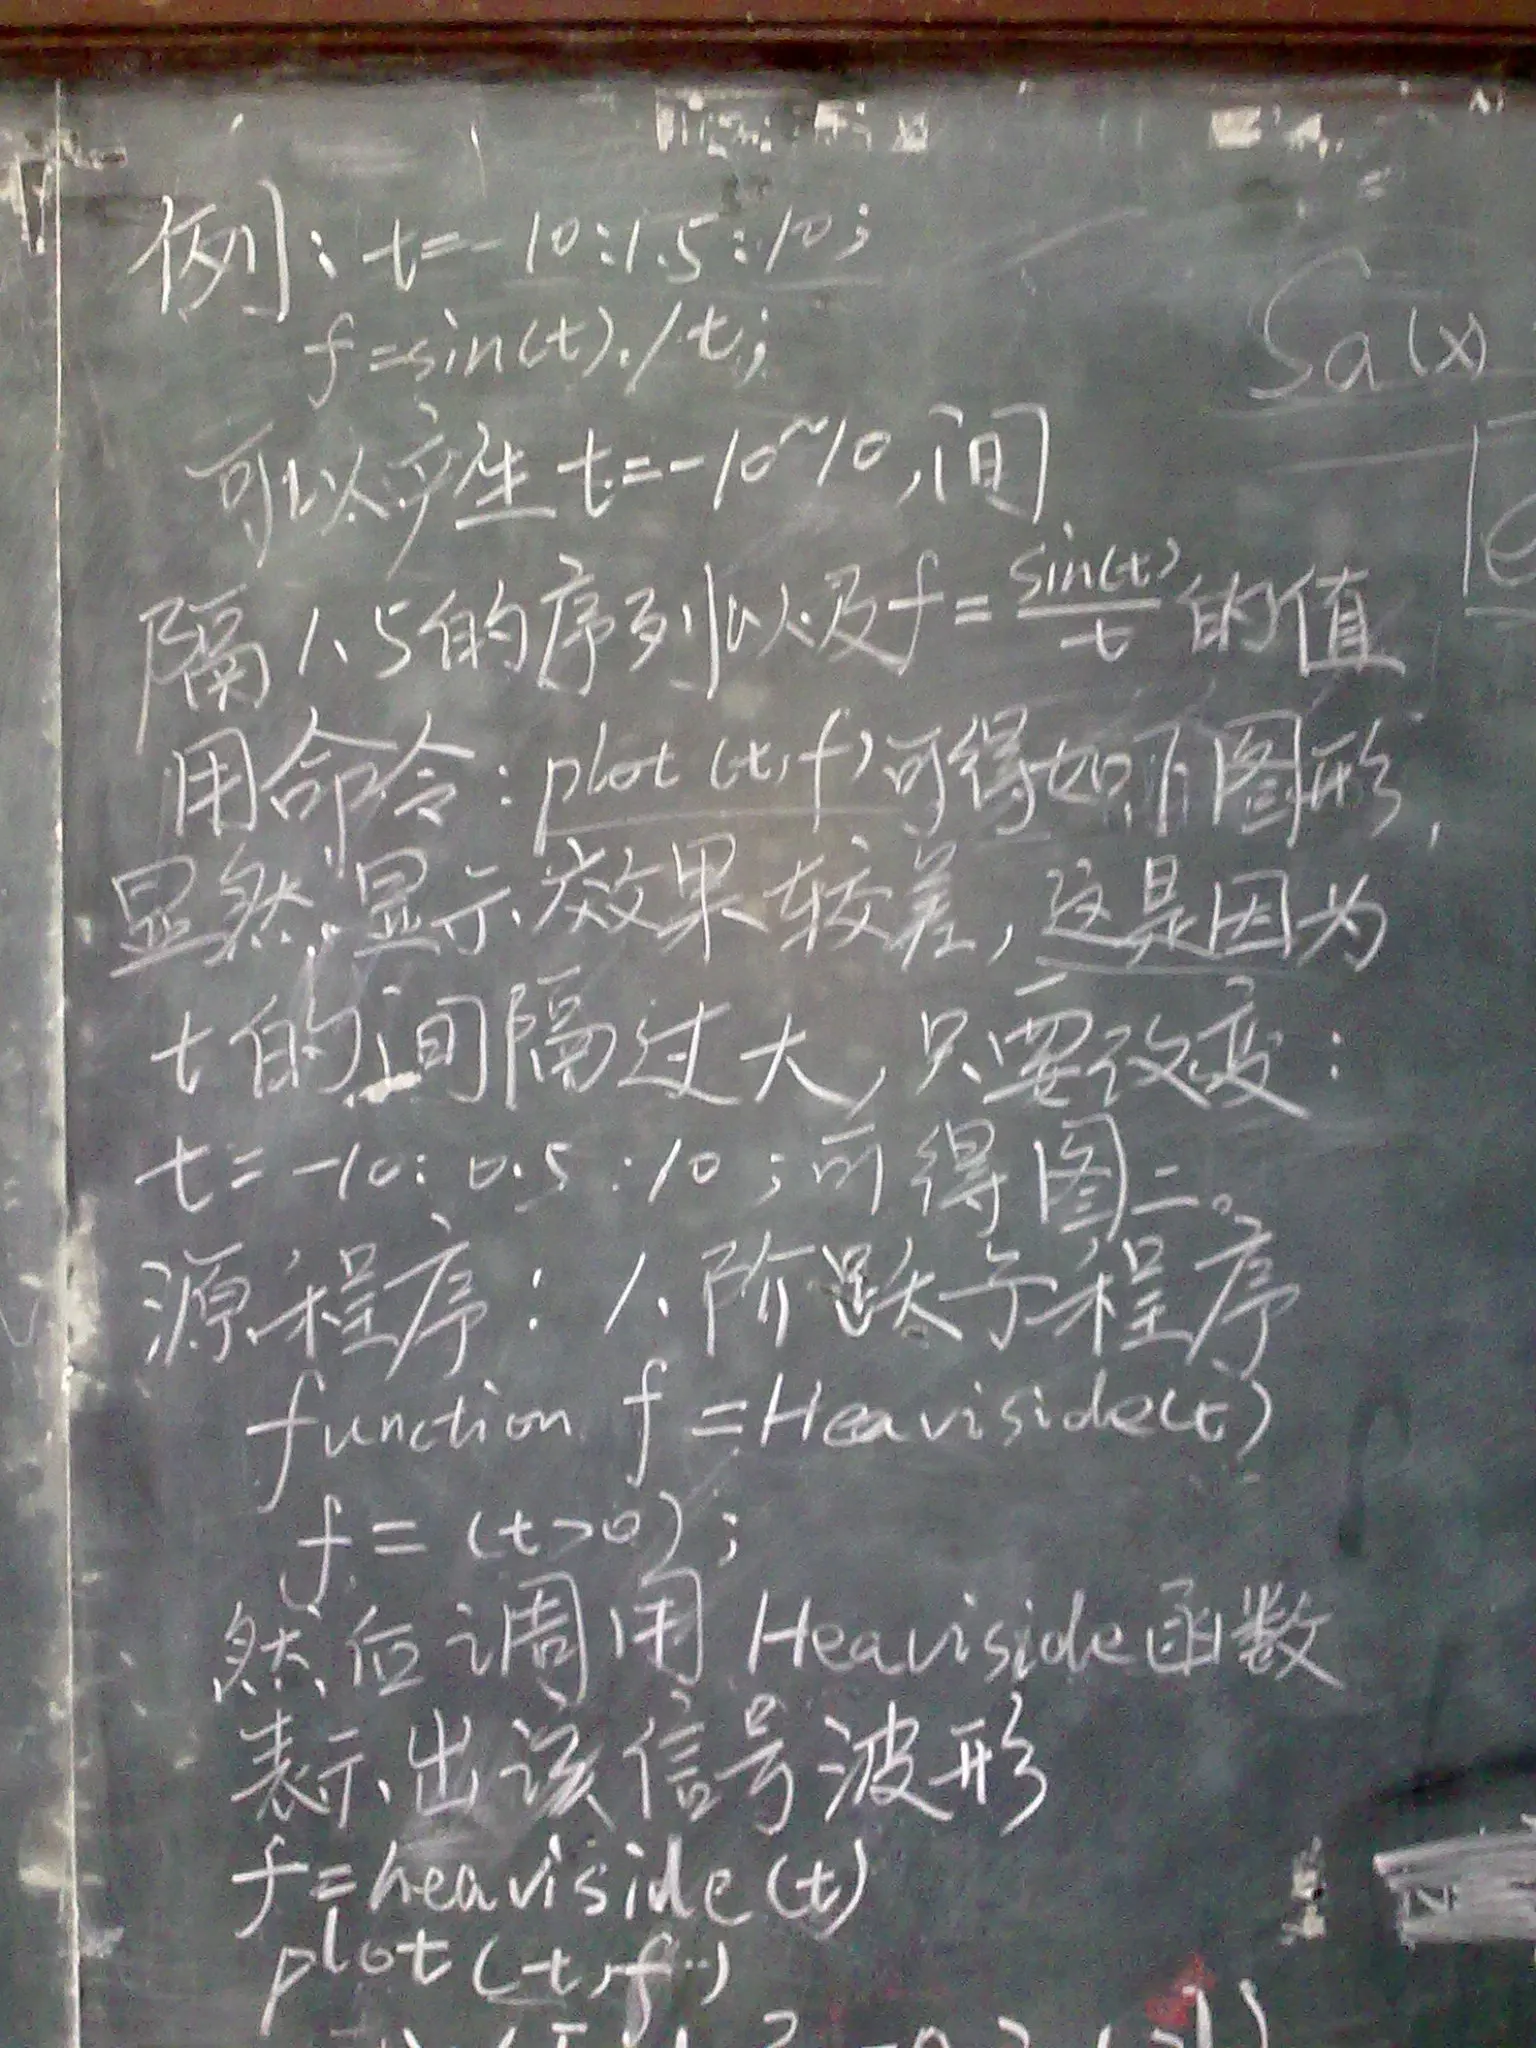 例:t=-10:1.5:10;
f=sin(t)./t;
Sa(x)
可以产生t=-10~10,间
隔1.5的序列以及f=sin(t)/t的值
用命令:plot(t,f)可得如下图形,
显然显示效果较差,这是因为
t的间隔过大,只要改变:
t=-10:0.5:10;可得图二。
源程序:1.阶跃子程序
function f=Heaviside(t)
f=(t>0);
然后调用Heaviside函数
表示出该信号波形
f=heaviside(t)
plot(t,f)